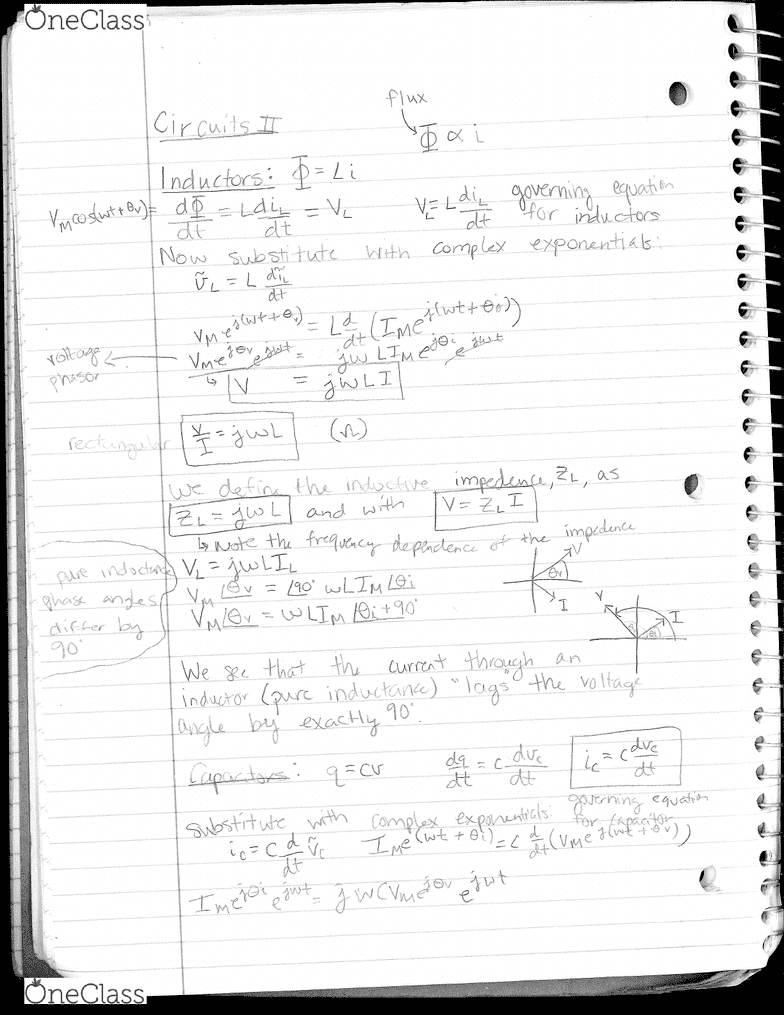 OneClass
flux
Circuits II
Φ ∝ i
Inductors: Φ = Li
V_M cos(wt+θv) = dΦ/dt = L di_L/dt = V_L   V_L = L di_L/dt governing equation for inductors
Now substitute with complex exponentials:
ṽ_L = L dĩ_L/dt
V_M e^j(wt+θv) = L d/dt (I_M e^j(wt+θi))
voltage phasor ← V_M e^jθv e^jwt = jwLI_M e^jθi e^jwt
↳ V = jwLI
rectangular V/I = jwL (Ω)
We define the inductive impedence, Z_L, as
Z_L = jwL and with V = Z_L I
↳ Note the frequency dependence of the impedence
V_L = jwLI_L
V_M ∠θv = ∠90° wLI_M ∠θi
V_M ∠θv = wLI_M ∠θi+90°
pure inductance
phase angles
differ by
90°
V
θv
I
V
I
θi
We see that the current through an
inductor (pure inductance) "lags" the voltage
angle by exactly 90°.
Capacitors: q = cv   dq/dt = c dv_c/dt   i_c = c dv_c/dt
governing equation
for capacitor
substitute with complex exponentials.
i_c = C d/dt ṽ_c   I_M e^(wt+θi) = C d/dt (V_M e^j(wt+θv))
I_M e^jθi e^jwt = jwCV_M e^jθv e^jwt
OneClass